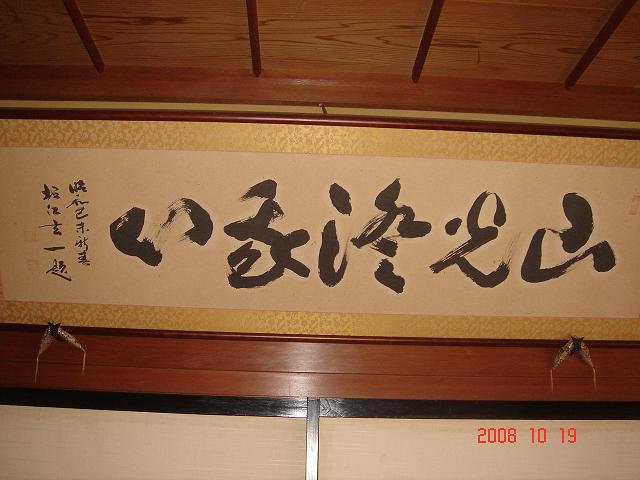 山光澄我心
昭和己未新春
江 一題
2008 10 19